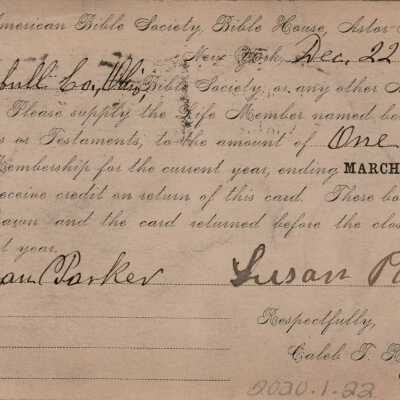 American Bible Society, Bible House, Astor
New York, Dec. 22
bull Co, Ohio Bible Society, or any other A
Please supply the Life Member named bel
s or Testaments, to the amount of One
Membership for the current year, ending MARCH
receive credit on return of this card. These bo
awn and the card returned before the clos
t year.
an Parker Susan P
Respectfully,
Caleb T. R
2020.1.22